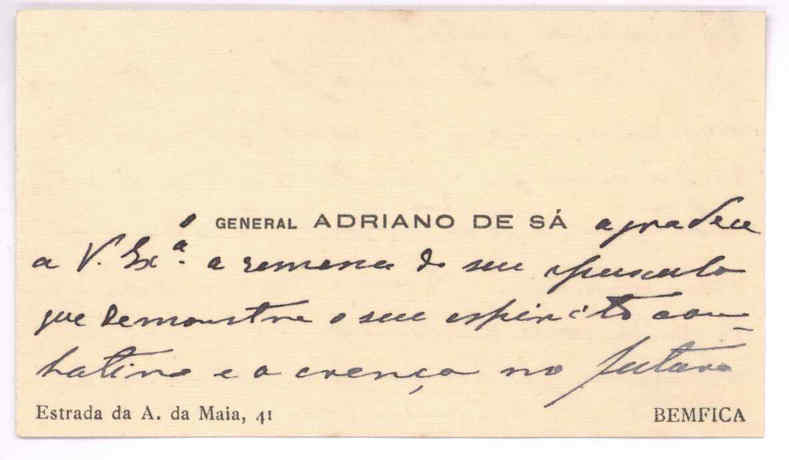 O GENERAL ADRIANO DE SÁ agradece
a V. Exª. a remessa do seu opusculo
que demonstra o seu espirito com-
bativo e a crença no futuro
Estrada da A. da Maia, 41 BEMFICA